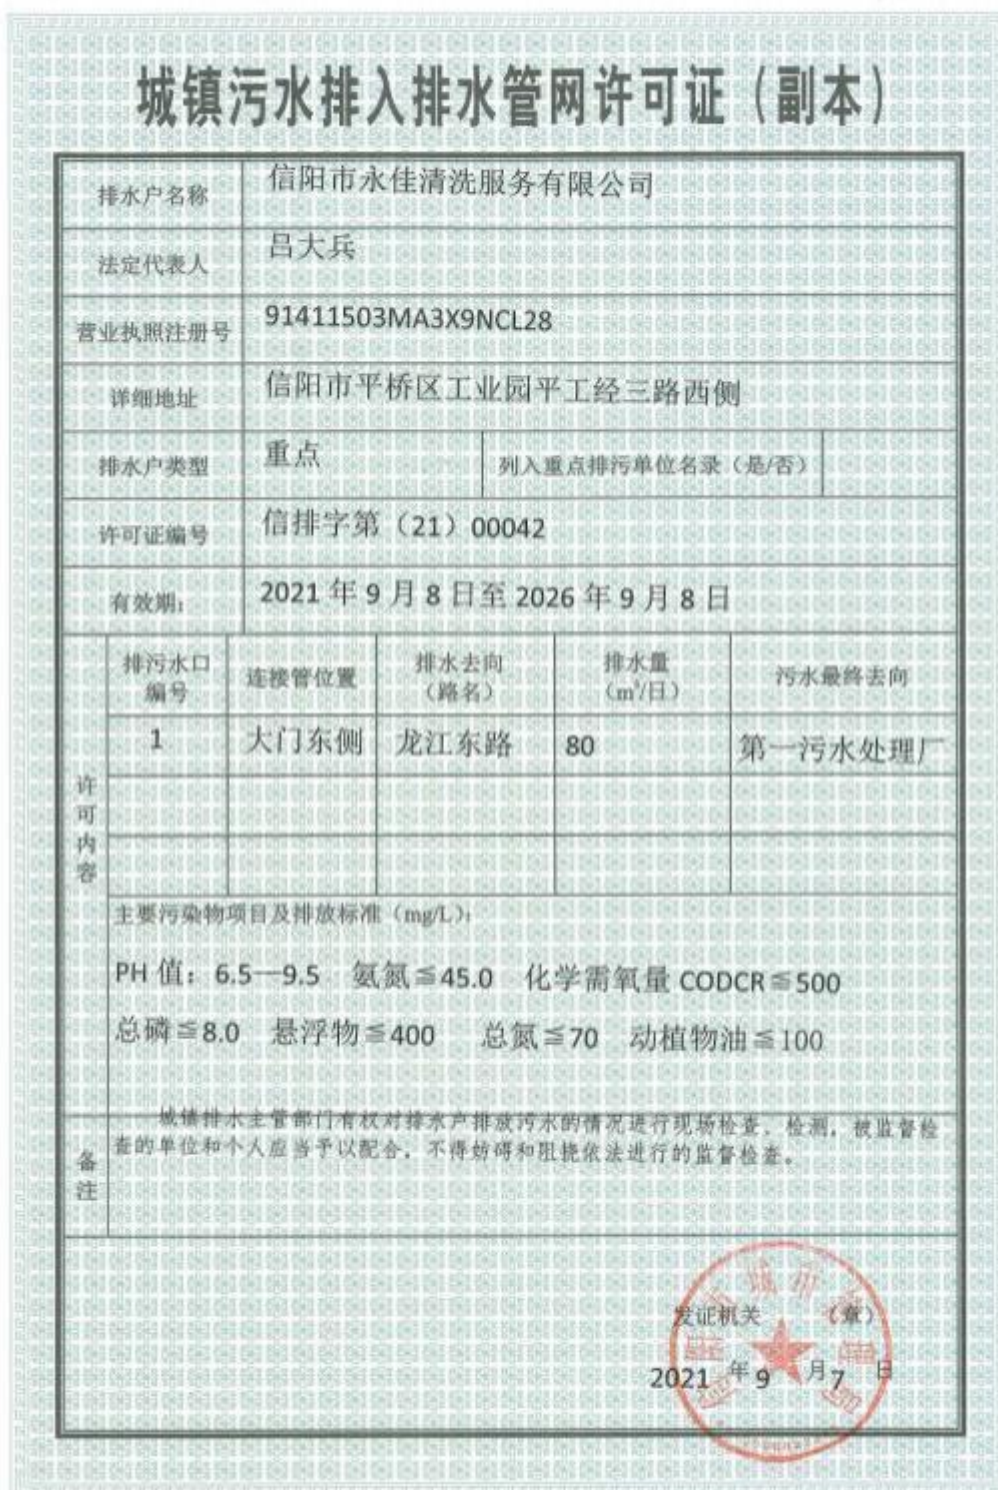 城镇污水排入排水管网许可证（副本）
排水户名称 信阳市永佳清洗服务有限公司
法定代表人 吕大兵
营业执照注册号 91411503MA3X9NCL28
详细地址 信阳市平桥区工业园平工经三路西侧
排水户类型 重点 列入重点排污单位名录（是/否）
许可证编号 信排字第（21）00042
有效期： 2021 年 9 月 8 日至 2026 年 9 月 8 日
许可内容
排污水口编号 连接管位置 排水去向（路名） 排水量（m³/日） 污水最终去向
1 大门东侧 龙江东路 80 第一污水处理厂
主要污染物项目及排放标准（mg/L）：
PH 值：6.5—9.5 氨氮≦45.0 化学需氧量 CODCR≦500
总磷≦8.0 悬浮物≦400 总氮≦70 动植物油≦100
备注
城镇排水主管部门有权对排水户排放污水的情况进行现场检查、检测，被监督检
查的单位和个人应当予以配合，不得妨碍和阻挠依法进行的监督检查。
发证机关 （章）
2021 年 9 月 7 日